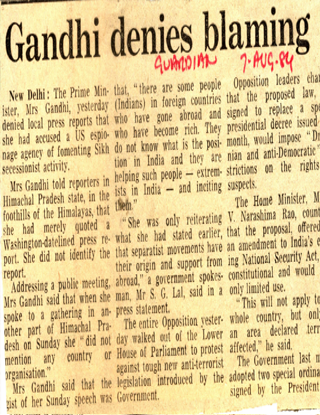 Gandhi denies blaming
GUARDIAN 7-AUG-84
New Delhi: The Prime Min-
ister, Mrs Gandhi, yesterday
denied local press reports that
she had accused a US espio-
nage agency of fomenting Sikh
secessionist activity.
Mrs Gandhi told reporters in
Himachal Pradesh state, in the
foothills of the Himalayas, that
she had merely quoted a
Washington-datelined press re-
port. She did not identify the
report.
Addressing a public meeting,
Mrs Gandhi said that when she
spoke to a gathering in an-
other part of Himachal Pra-
desh on Sunday she "did not
mention any country or
organisation."
Mrs Gandhi said that the
gist of her Sunday speech was
that, "there are some people
(Indians) in foreign countries
who have gone abroad and
who have become rich. They
do not know what is the posi-
tion in India and they are
helping such people — extrem-
ists in India — and inciting
them."
"She was only reiterating
what she had stated earlier,
that separatist movements have
their origin and support from
abroad," a government spokes-
man, Mr S. G. Lal, said in a
press statement.
The entire Opposition yester-
day walked out of the Lower
House of Parliament to protest
against tough new anti-terrorist
legislation introduced by the
Government.
Opposition leaders char
that the proposed law,
signed to replace a spe
presidential decree issued
month, would impose "Dr
nian and anti-Democratic"
strictions on the rights
suspects.
The Home Minister, M
V. Narashima Rao, count
that the proposal, offered
an amendment to India's e
ing National Security Act,
constitutional and would
only limited use.
"This will not apply to
whole country, but only
an area declared terr
affected," he said.
The Government last m
adopted two special ordina
signed by the President